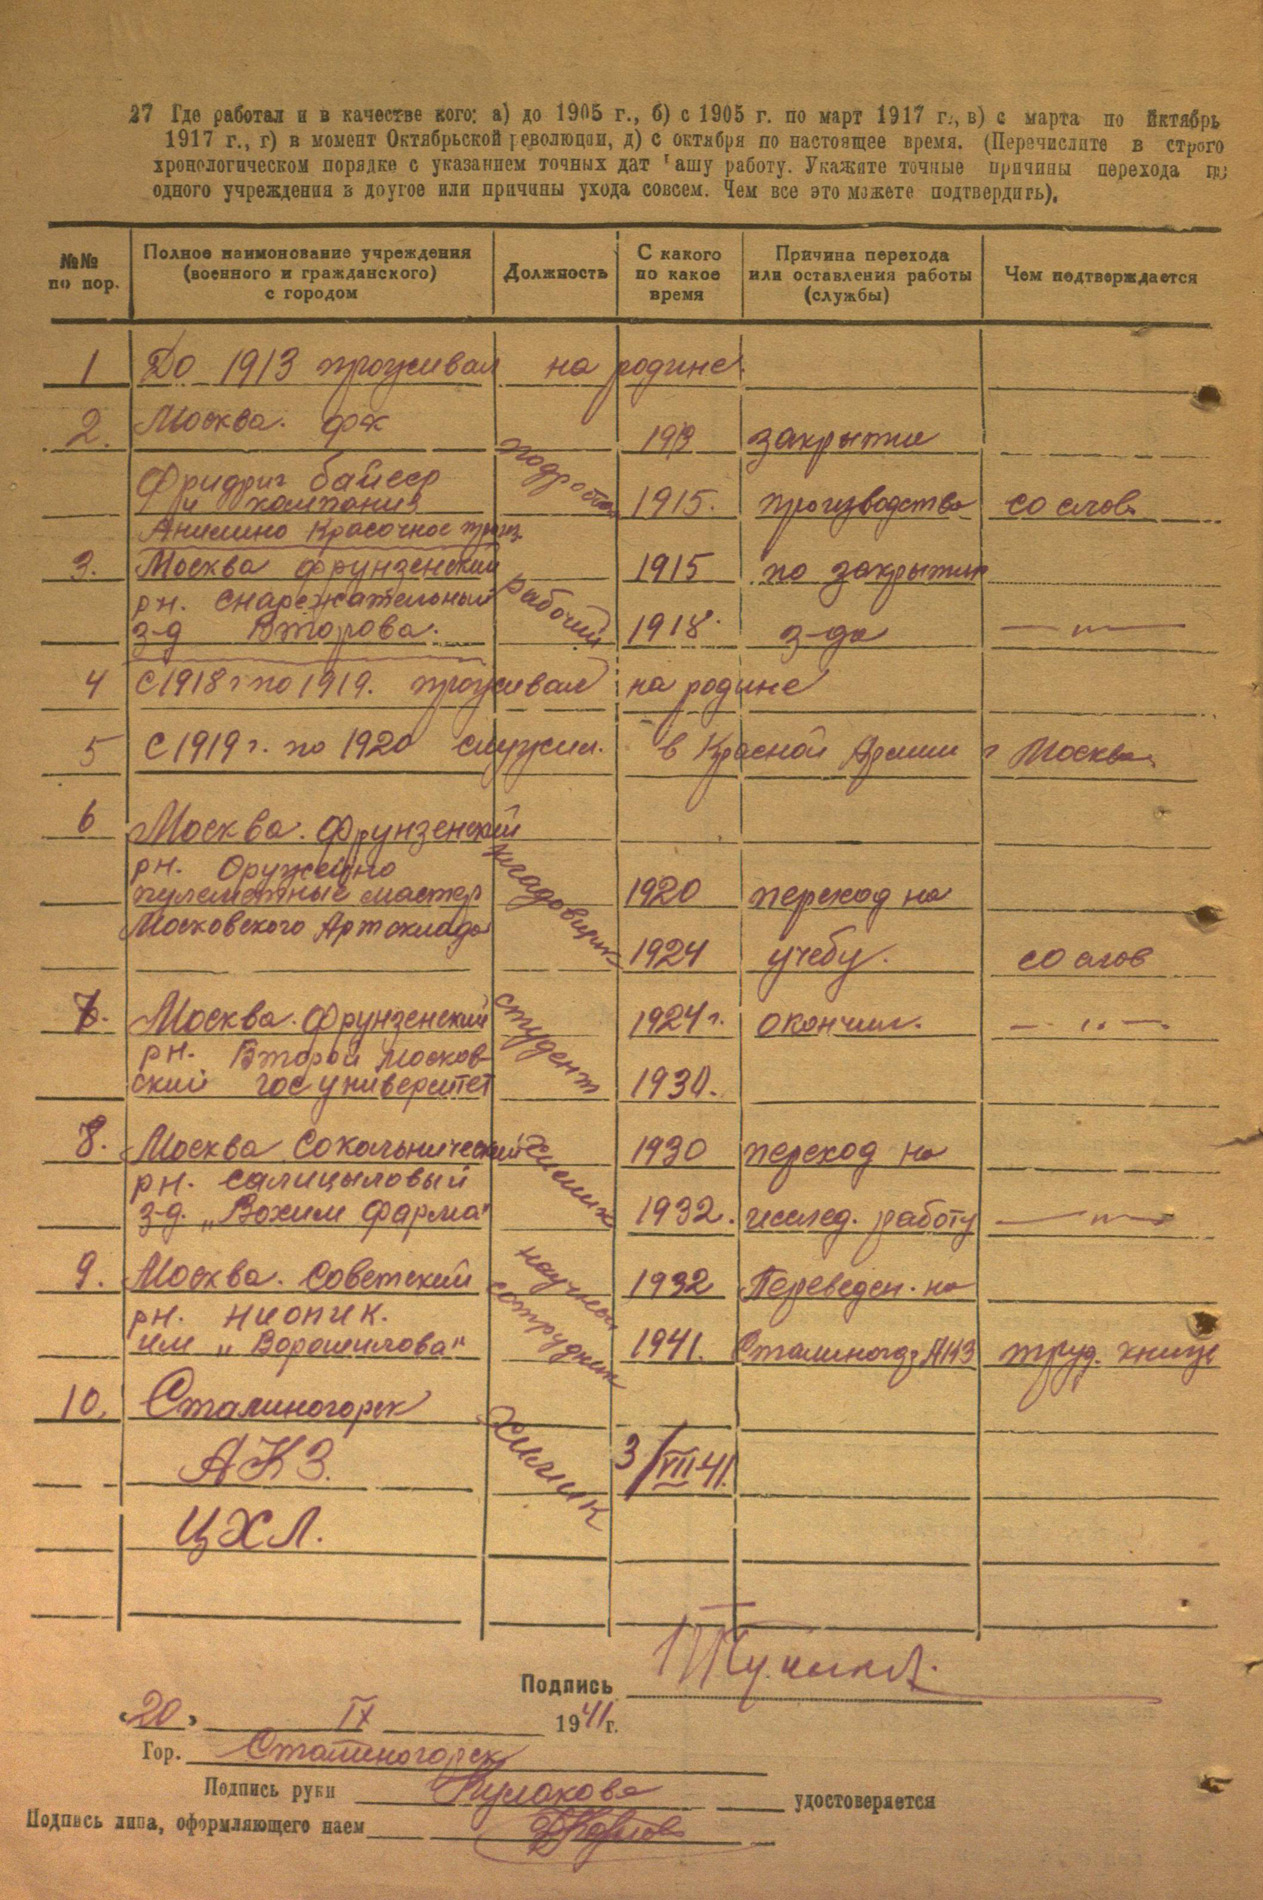 27 Где работал и в качестве кого: а) до 1905 г., б) с 1905 г. по март 1917 г., в) с марта по Октябрь
1917 г., г) в момент Октябрьской революции, д) с октября по настоящее время. (Перечислите в строго
хронологическом порядке с указанием точных дат Вашу работу. Укажите точные причины перехода из
одного учреждения в другое или причины ухода совсем. Чем все это можете подтвердить).
№№ по пор.
Полное наимонование учреждения (военного и гражданского) с городом
Должность
С какого по какое время
Причина перехода или оставления работы (службы)
Чем подтверждается
1 До 1913 проживал на родине.
2. Москва. фк 1913 закрытие
Фридриг байеер и компания подросток 1915. производства со слов
Анилино Красочное произ.
3. Москва фрунзенский 1915 по закрытии
рн. снаряжательный рабочий
з-д Второва. 1918. з-да —"—
4 С 1918 г по 1919. проживал на родине
5 С 1919 г. по 1920 служил. в Красной Армии г Москва.
6 Москва. Фрунзенский
рн. Оружейно кладовщик
пулеметные мастер 1920 переход на
Московского Артсклада
1924 учебу. со слов
7. Москва. Фрунзенский студент 1924 г. окончил. —"—
рн. Второй Москов-
ский госуниверситет 1930.
8. Москва Сокольнический химик 1930 переход на
рн. салицыловый
з-д. „Вохим фарма" 1932. исслед. работу —"—
9. Москва. Советский научный сотрудник 1932 Переведен. на
рн. НИОПИК.
им „Ворошилова" 1941. Сталиногор АКЗ труд. книж
10. Сталиногорск химик
АКЗ. 3/VII 41.
ЦХЛ.
Подпись
„20" IX 1941 г.
Гор. Сталиногорск
Подпись руки Кулакова удостоверяется
Подпись лица, оформляющего наем